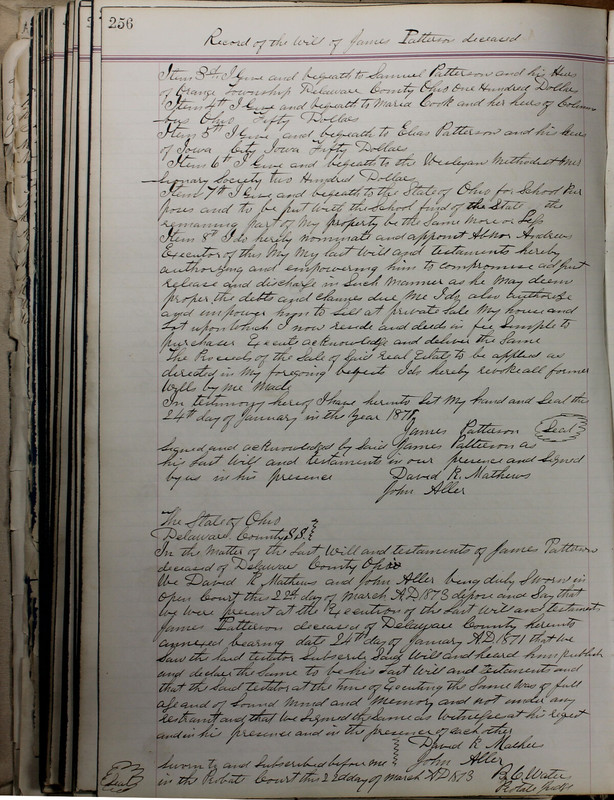 256
Record of the Will of James Patterson deceased
Item 3rd I Give and beqeath to Samuel Patterson and his Heirs
of Orange Township Delaware County Ohio One Hundred Dollars
Item 4th I Give and begeath to Maria Cook and her heirs of Colum
bus Ohio Fifty Dollars
Item 5th I Give and begeath to Elias Patterson and his heirs
of Iowa City Iowa Fifty Dollars
Item 6th I Give and begeath to the Wesleyan Methodist Mis
sionary Society two Hundred Dollars
Item 7th I Give and begeath to the State of Ohio for School Pur
poses and to be put with the School fund of the State the
remaining part of My property be the Same More or Less
Item 8th I do hereby nominate and appoint Abnor Andrews
Executor of this My My last Will and testaments hereby
authorizing and empowering him to compromise adjust
release and discharge in Such manner as he May deem
proper the debts and claimes due Me I do also authorize
and empower him to Sell at private Sale My house and
Lot upon Which I now reside and deeds in fee Simple to
purchaser Execute acknowledge and deliver the Same
The Proceeds of the Sale of Said real Estate to be applied as
directed in My foregoing beqests I do hereby revoke all former
Wills by me Made
In testimony hereof I have hereunto Set My hand and Seal this
24th day of January in the Year 1871
James Patterson Seal
Signed and acknowledged by Said James Patterson as
his Last Will and testaments in our presence and Signed
by us in his presence David R. Mathews
John Aller
The State of Ohio
Delaware County SS.
In the Matter of the Last Will and testaments of James Patterson
deceased of Delaware County Ohio
We David R Mathews and John Aller being duly Sworn in
Open Court this 22d day of March A.D. 1873 depose and Say that
we Were present at the Execution of the Last Will and testaments
James Patterson deceased of Delaware County hereunto
annexed bearing date 24th day of January A.D. 1871 that we
Saw the Said testator Subscribe Said Will and heard him publish
and declare the Same to be his Last Will and testaments and
that the Said testator at the time of Executing the Same Was of full
age and of Sound Mind and Memory and not under any
restraint and that we Signed the Same as Witnesses at his reqest
and in his presence and in the presence of each other
David R Mathe
John Aller
Sworn to and Subscribed before me
in the Probate Court this 22d day of March A.D. 1873 B. C. Waters
Seal Probate Judge